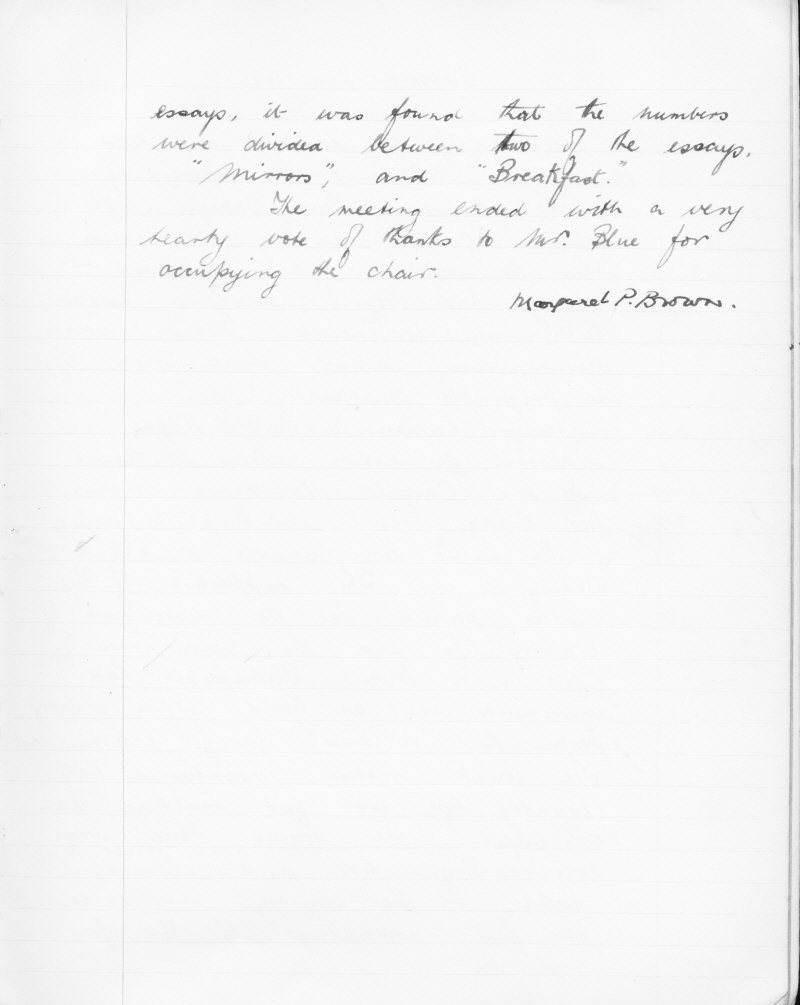 essays, it was found that the numbers
were divided between two of the essays.
"Mirrors", and "Breakfast."
The meeting ended with a very
hearty vote of thanks to Mr. Blue for
occupying the chair.
Margaret P. Brown.